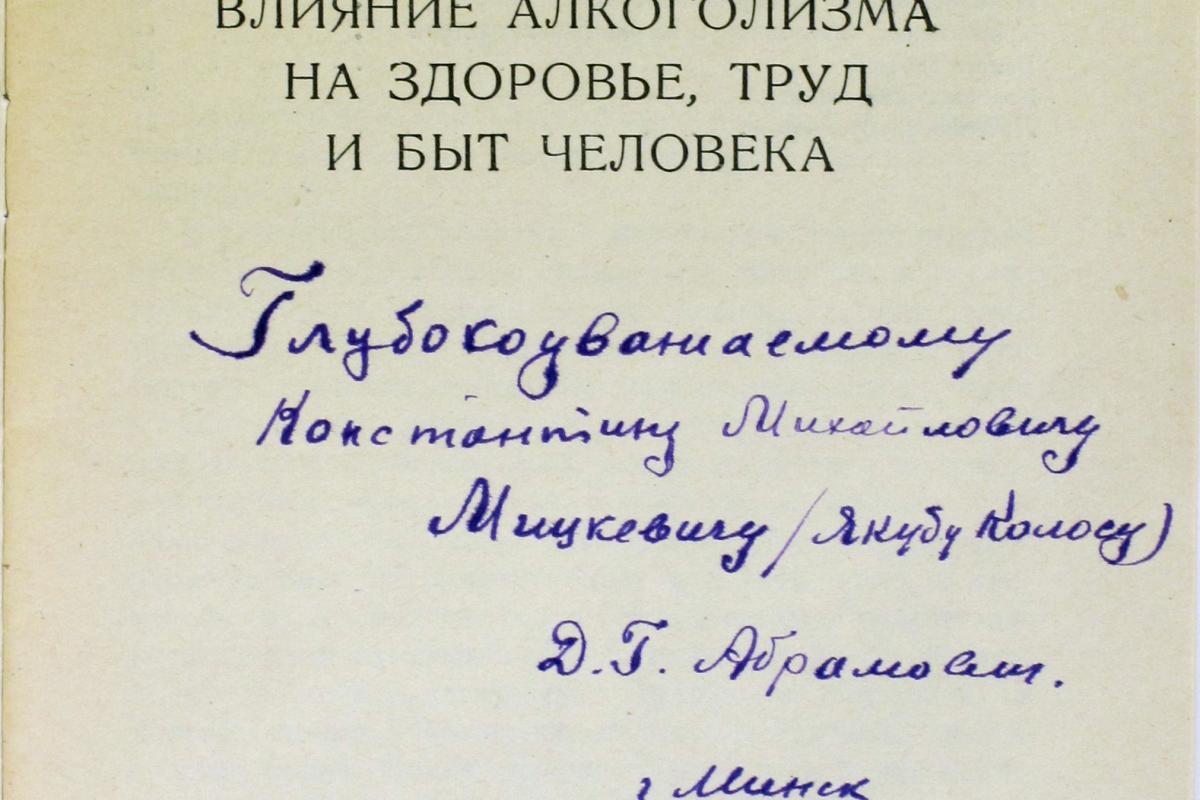 ВЛИЯНИЕ АЛКОГОЛИЗМА
НА ЗДОРОВЬЕ, ТРУД
И БЫТ ЧЕЛОВЕКА
Глубокоуважаемому
Константину Михайловичу
Мицкевичу (Якубу Коласу)
Д.Г. Абрамович.
г Минск